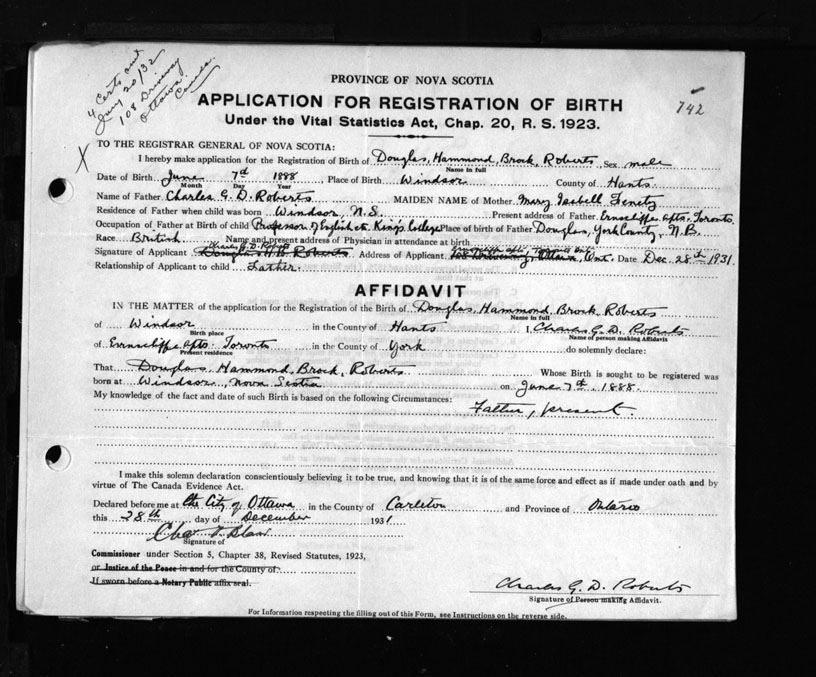 4 Certs sent
July 20/32
108 Driveway
Ottawa
Canada.
742
PROVINCE OF NOVA SCOTIA
APPLICATION FOR REGISTRATION OF BIRTH
Under the Vital Statistics Act, Chap. 20, R. S. 1923.
X
TO THE REGISTRAR GENERAL OF NOVA SCOTIA:
I hereby make application for the Registration of Birth of Douglas, Hammond, Brock, Roberts, Sex male
Name in full
Date of Birth June 7th 1888, Place of Birth Windsor County of Hants
Month Day Year
Name of Father Charles G. D. Roberts MAIDEN NAME of Mother Mary Isabell Fenety
Residence of Father when child was born Windsor, N.S. Present address of Father Ernscliffe Apts. Toronto.
Occupation of Father at Birth of child Professor of English etc. King's College Place of birth of Father Douglas, York County, N.B.
Race British Name and present address of Physician in attendance at birth
Charles G. D. Roberts
Signature of Applicant Douglas H B Roberts Address of Applicant 108 Driveway, Ottawa, Ont. Date Dec. 28th 1931.
Relationship of Applicant to child Father.
AFFIDAVIT
IN THE MATTER of the application for the Registration of the Birth of Douglas, Hammond, Brock, Roberts
Name in full
of Windsor in the County of Hants I, Charles G. D. Roberts
Birth place Name of person making Affidavit
of Ernscliffe Apts. Toronto in the County of York do solemnly declare:
Present residence
That Douglas, Hammond, Brock, Roberts Whose Birth is sought to be registered was
born at Windsor, Nova Scotia on June 7th, 1888.
My knowledge of the fact and date of such Birth is based on the following Circumstances:
Father, present.
I make this solemn declaration conscientiously believing it to be true, and knowing that it is of the same force and effect as if made under oath and by
virtue of The Canada Evidence Act.
Declared before me at the City of Ottawa in the County of Carleton and Province of Ontario
this 28th day of December 1931
Signature of
Commissioner under Section 5, Chapter 38, Revised Statutes, 1923,
or Justice of the Peace in and for the County of
If sworn before a Notary Public affix seal.
Charles G. D. Roberts
Signature of Person making Affidavit.
For Information respecting the filling out of this Form, see Instructions on the reverse side.